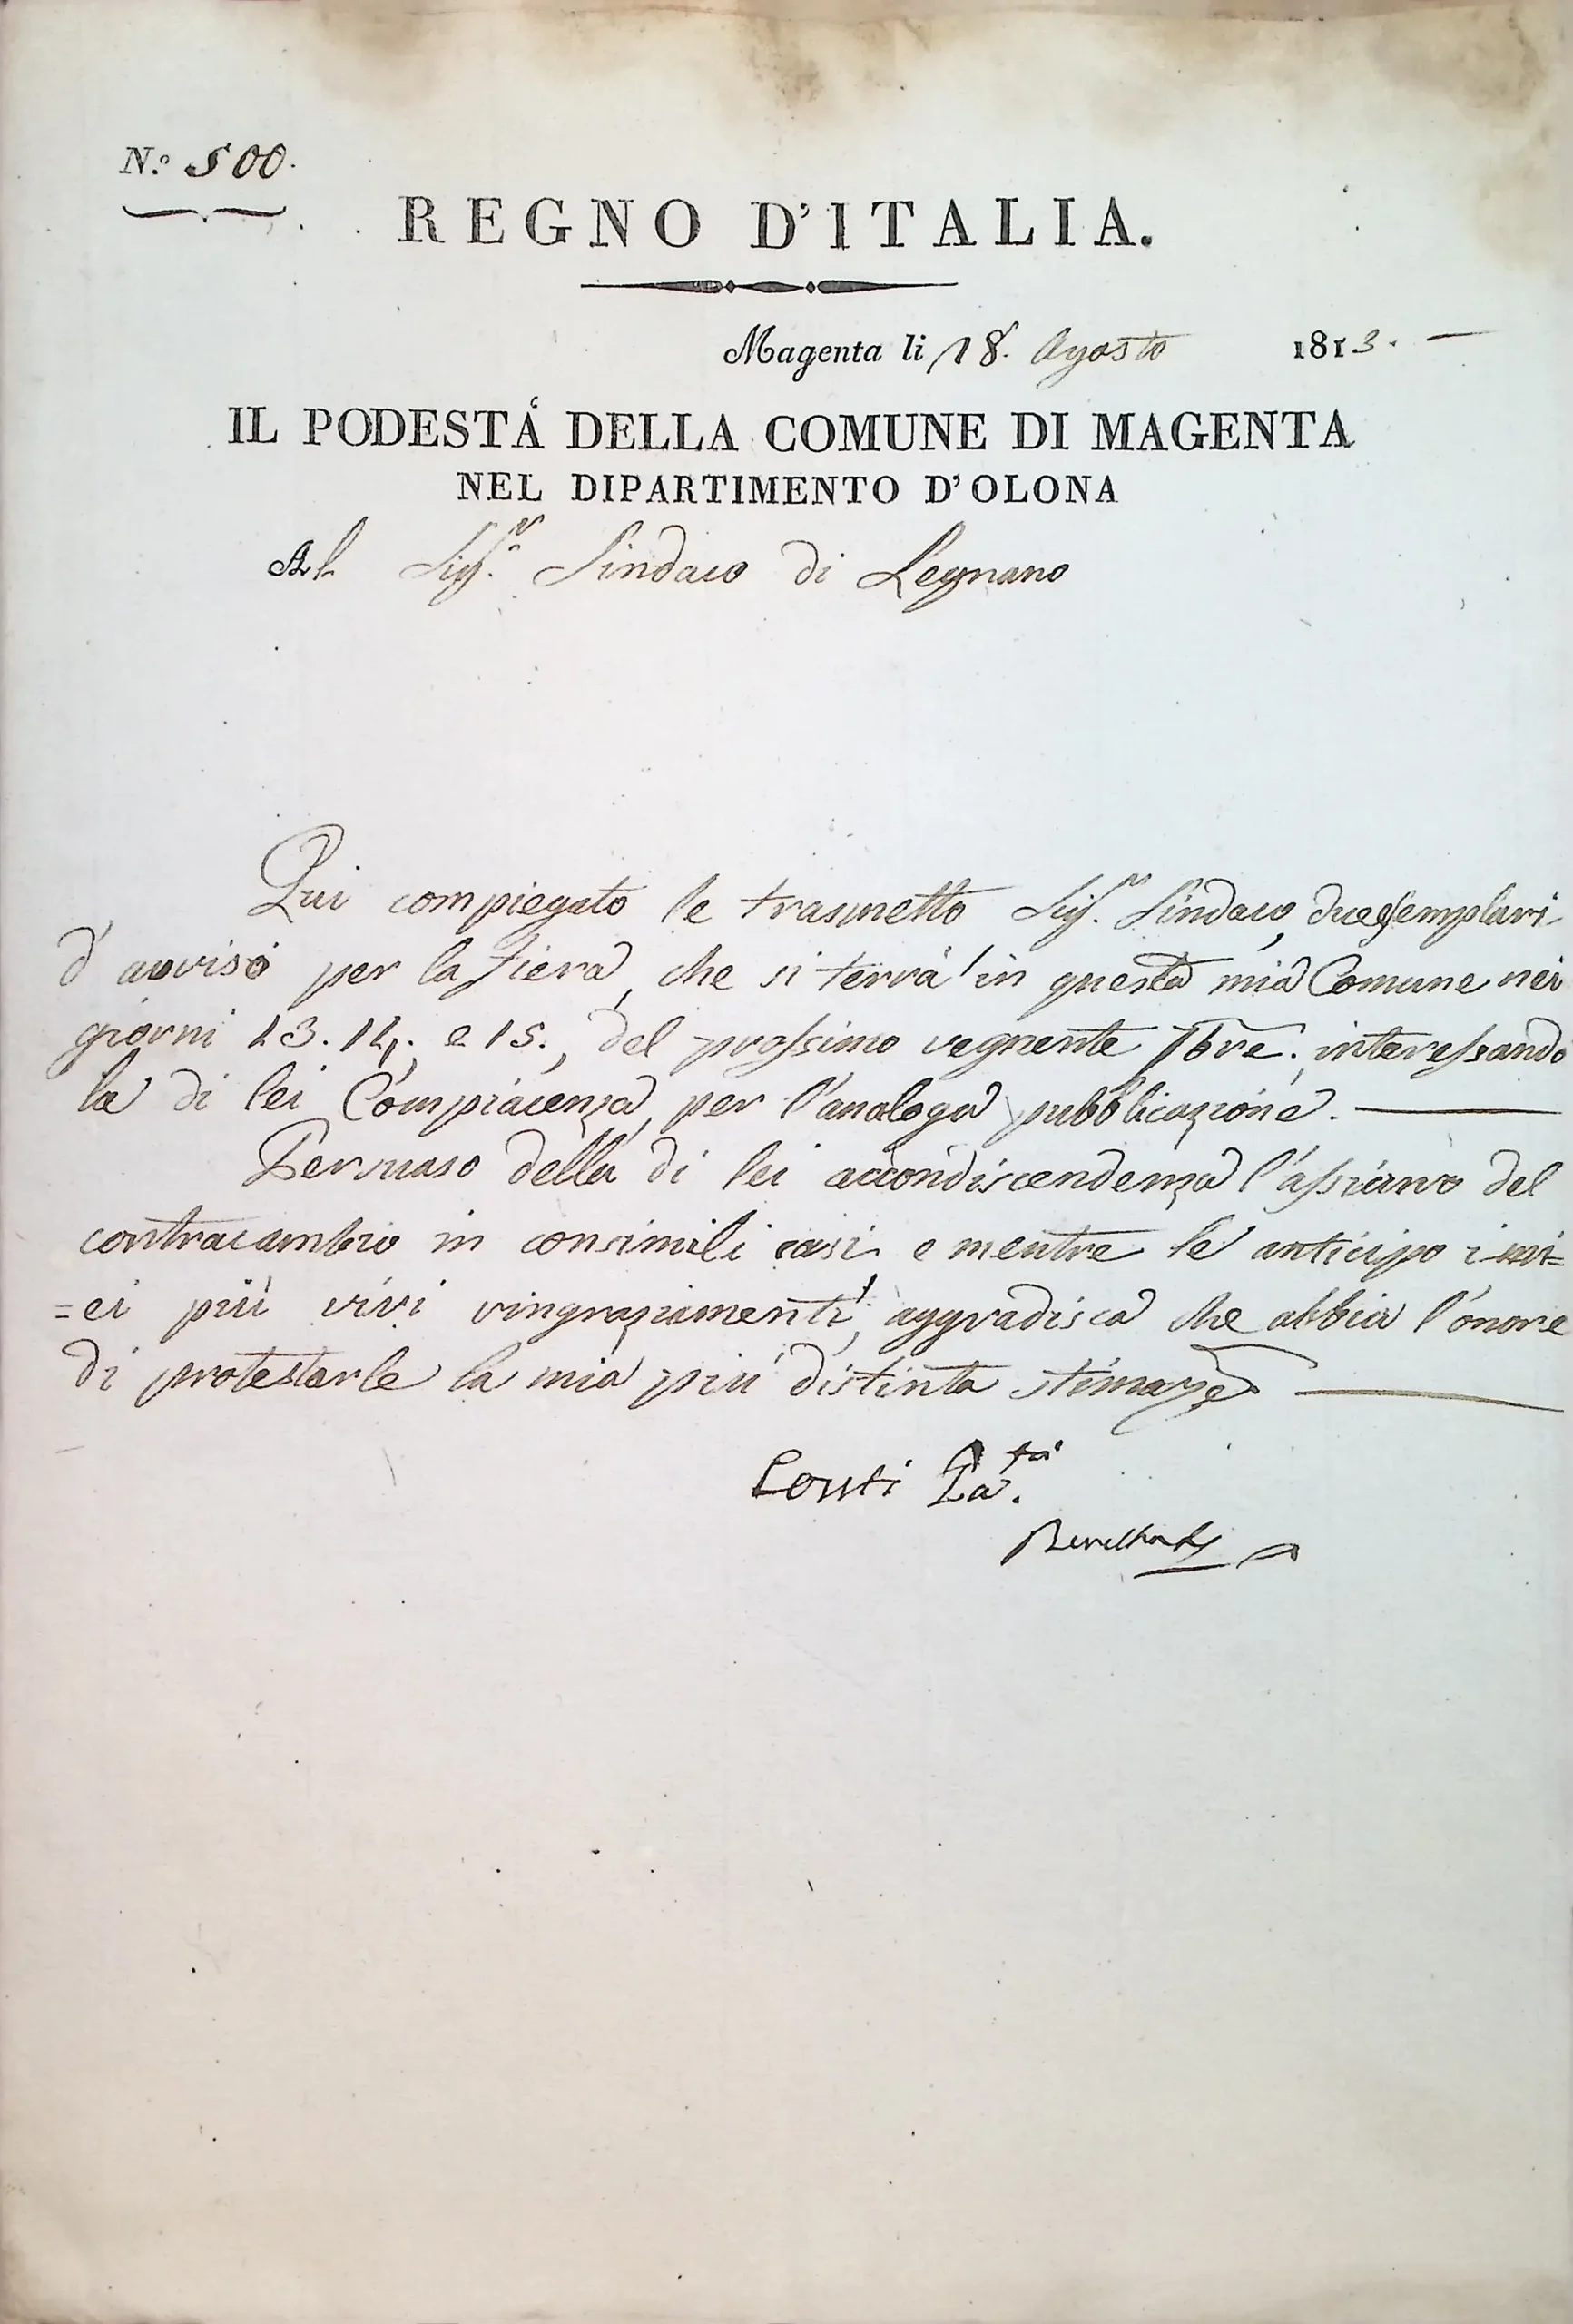 N.º 500.
REGNO D'ITALIA.
Magenta li 18. Agosto 1813.
IL PODESTÁ DELLA COMUNE DI MAGENTA
NEL DIPARTIMENTO D'OLONA
Al Sig.r Sindaco di Legnano
Qui compiegato le trasmetto Sig.r Sindaco, due esemplari
d'avviso per la fiera, che si terrà in questa mia Comune nei
giorni 13. 14. e 15., del prossimo vegnente 7bre. interessando
la di lei Compiacenza, per l'analoga pubblicazione.
Persuaso della di lei accondiscendenza l'assicuro del
contracambio in consimili casi, e mentre le anticipo i mi=
=ei più vivi ringraziamenti, aggradisca che abbia l'onore
di protestarle la mia più distinta
Conti